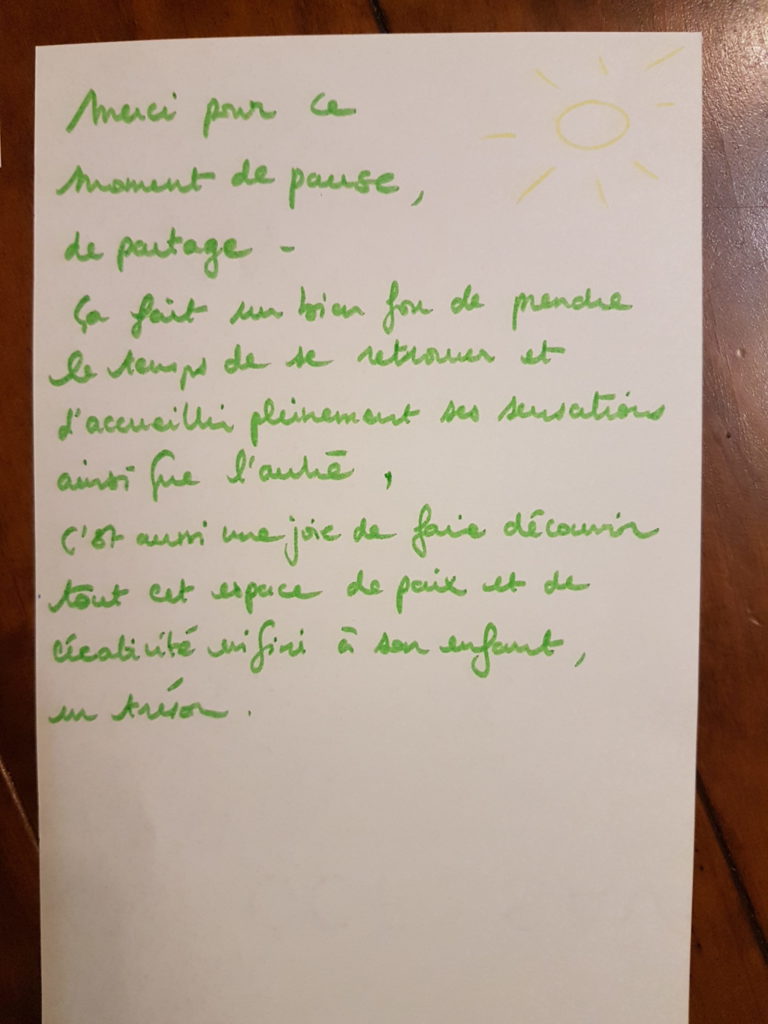 Merci pour ce
moment de pause,
de partage -
Ça fait un bien fou de prendre
le temps de se retrouver et
d'accueillir pleinement ses sensations
ainsi que l'autre,
C'est aussi une joie de faire découvrir
tout cet espace de paix et de
créativité infini à son enfant,
un trésor.